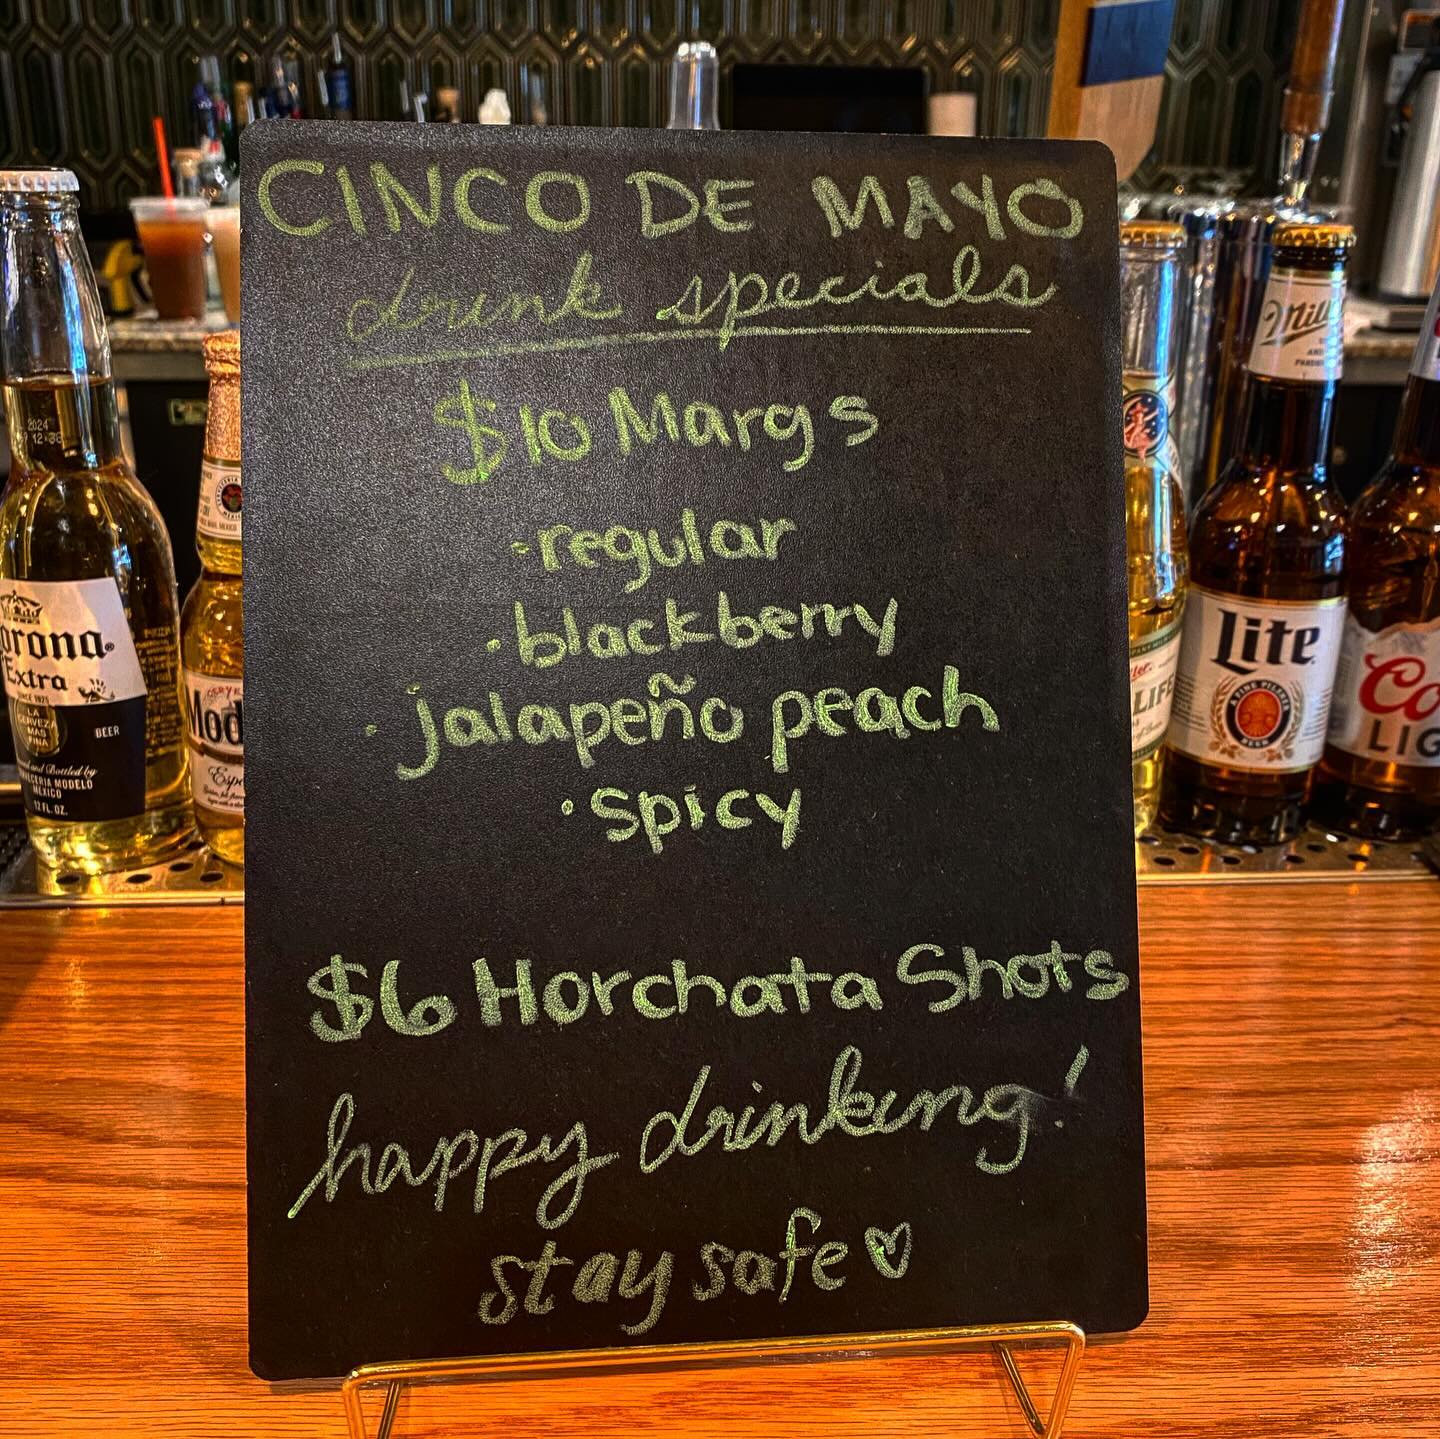 CINCO DE MAYO
drink specials
$10 Margs
·regular
·blackberry
·jalapeño peach
·spicy
$6 Horchata Shots
happy drinking!
stay safe ♡
2024
orona®
Extra
SINCE 1925
LA
CERVEZA
MAS
FINA
BEER
and Bottled by
CERVECERIA MODELO
MEXICO
12 FL. OZ.
Mod
Espe
LIFE
Mill
Lite
A FINE PILSNER
BEER
Co
LIG